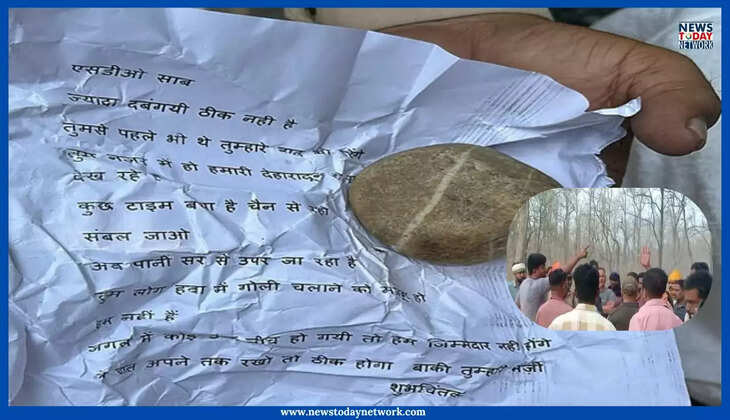 NEWS
TODAY
NETWORK
एसडीओ साब
ज्यादा दबंगयी ठीक नही है
तुमसे पहले भी थे तुम्हारे
नजर में हो हमारी देहारादून
देख रहे
कुछ टाइम बचा है चैन से रहो
संबल जाओ
अब पानी सर से उपर जा रहा है
तुम लोग हवा में गोली चलाने को
हम नहीं हैं
जंगल में कोइ हो गयी तो हम जिम्मेदार नही होंगे
अपने तक रखो तो ठीक होगा बाकी
शुभचिंतक
www.newstodaynetwork.com